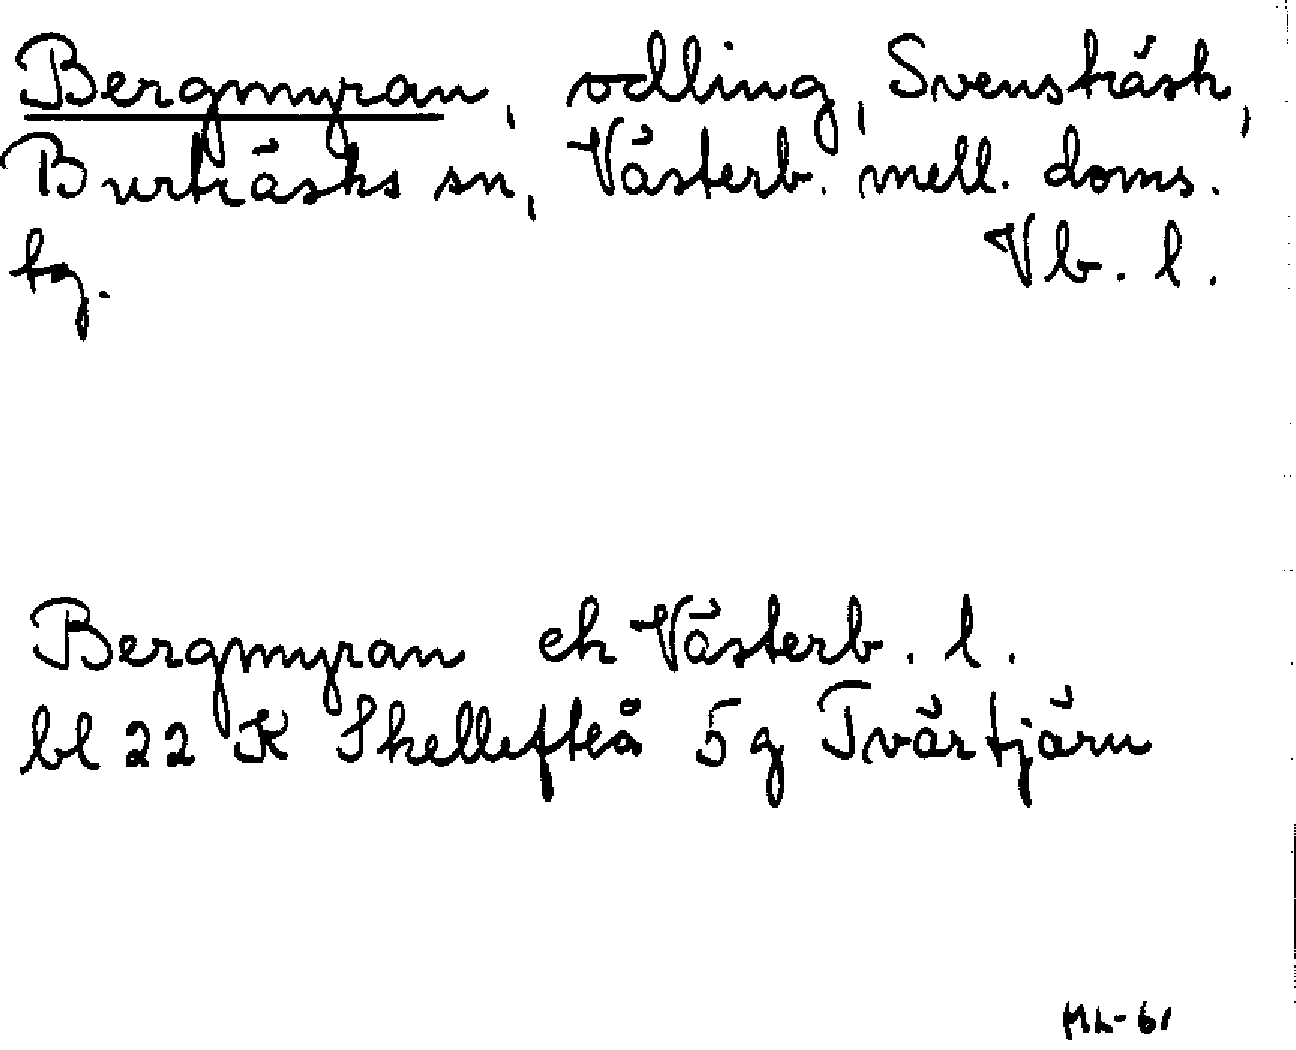 Bergmyran, odling, Svensträsk,
Burträsks sn, Västerb. mell. doms.
tg. Vb. l.
Bergmyran ek Västerb. l.
bl 22 K Skellefteå 5 g Tvärtjärn
ML-61